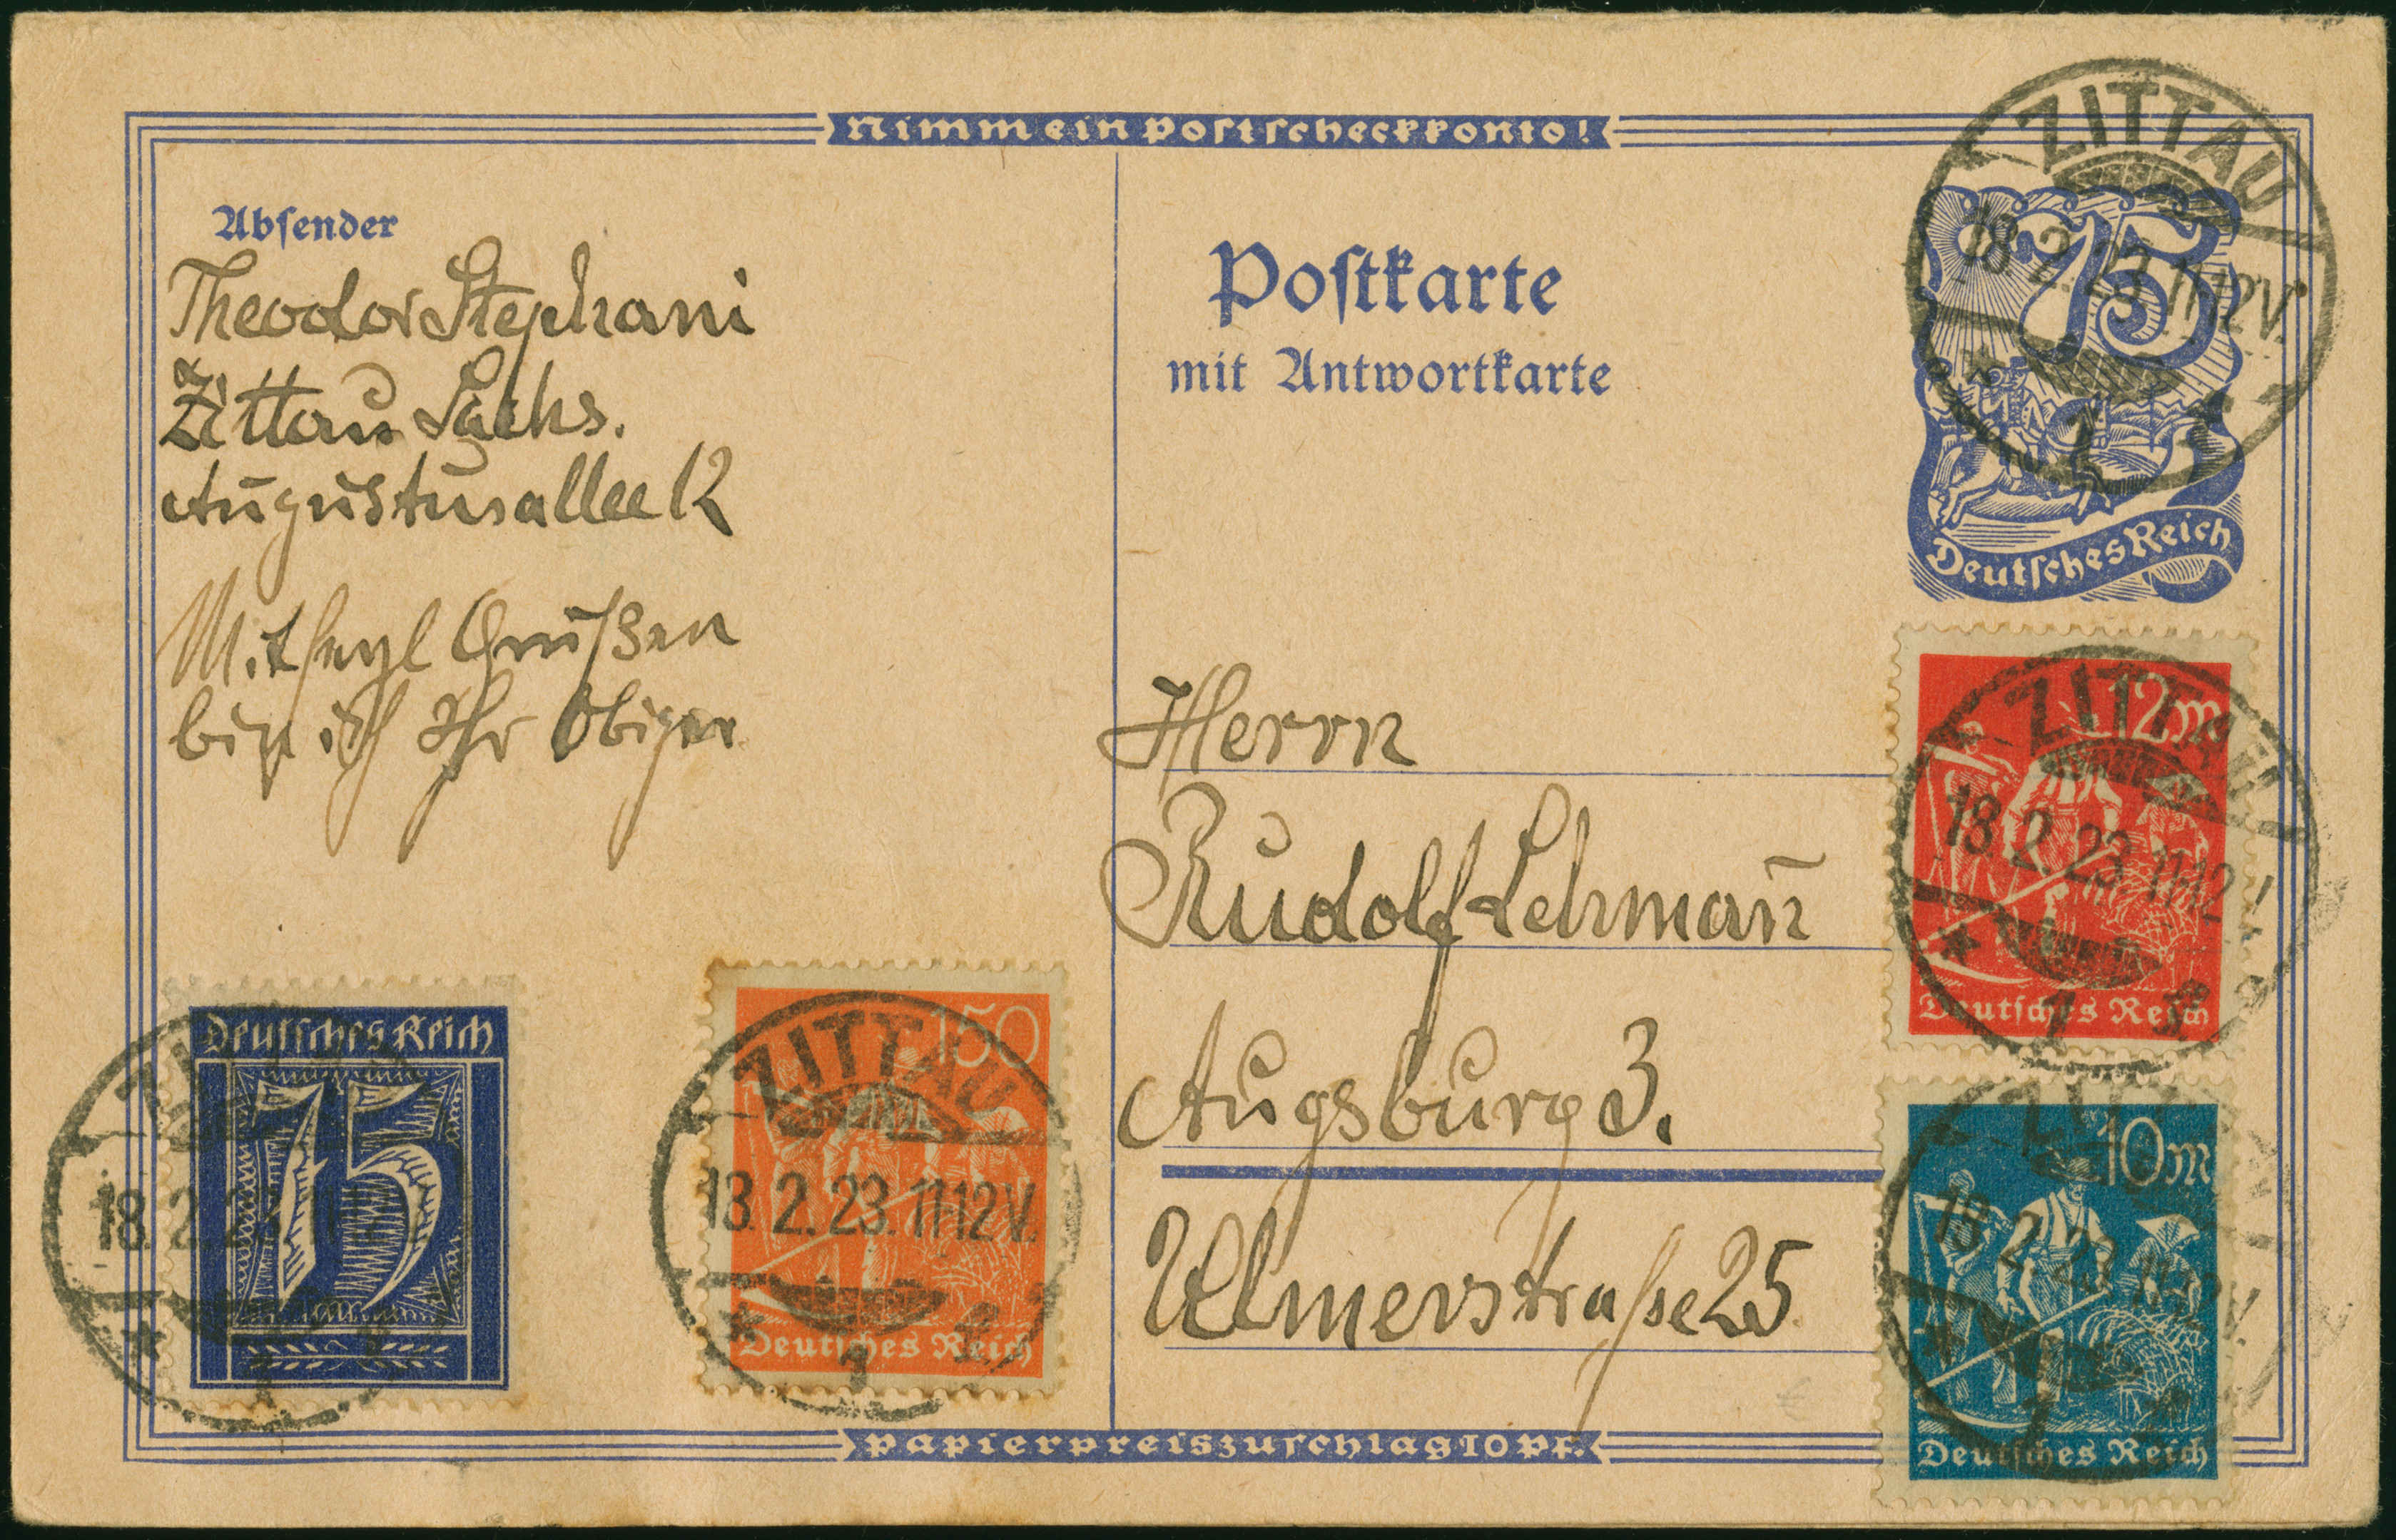 Nimm ein Postscheckkonto!
Absender
Theodor Stephani
Zittau Sachs.
Augustusallee 12
Mit herzl Grüßen
bin ich Ihr Obiger
Postkarte
mit Antwortkarte
75
Deutsches Reich
ZITTAU
18.2.23.11-12V.
1
Herrn
Rudolf Lehman̄
Augsburg 3.
Ulmerstraße 25
12M
Deutsches Reich
ZITTAU
18.2.23.11-12
1
10M
Deutsches Reich
18.2.23.11-12V.
1
Deutsches Reich
75
18.2.23.11
150
Deutsches Reich
ZITTAU
18.2.23.11-12V.
1
Papierpreiszuschlag 10 Pf.